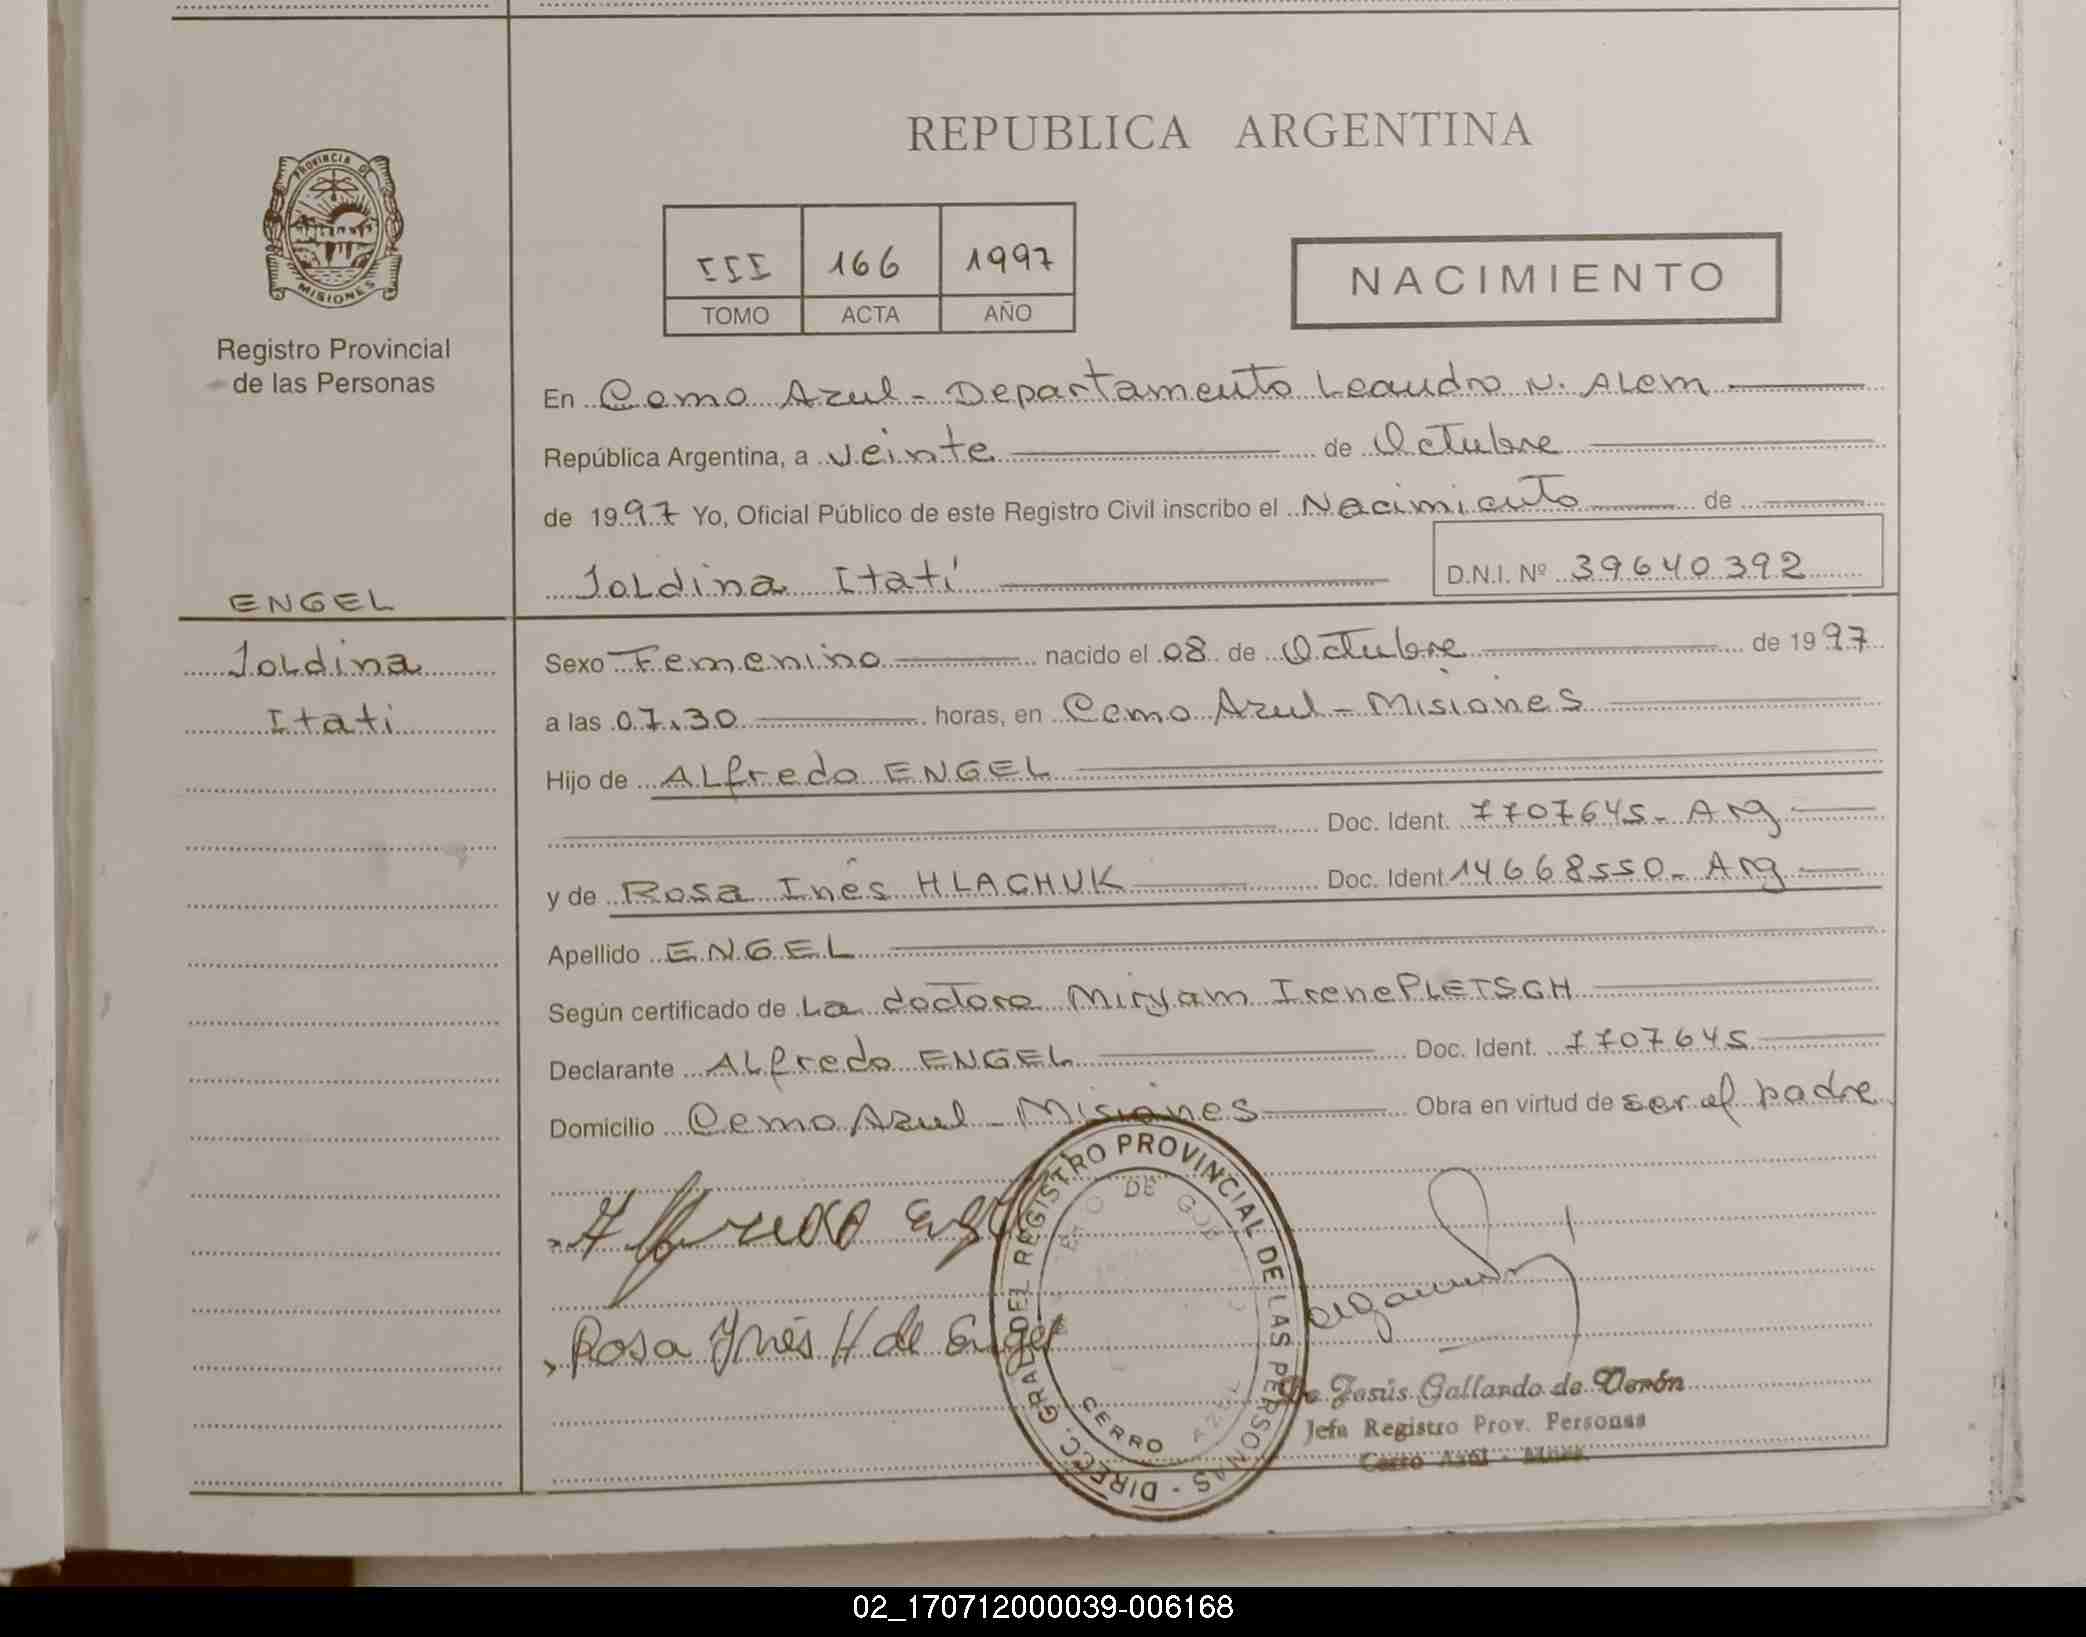 REPUBLICA ARGENTINA
PROVINCIA DE MISIONES
Registro Provincial
de las Personas
III 166 1997
TOMO ACTA AÑO
NACIMIENTO
En Cerro Azul - Departamento Leandro N. Alem
República Argentina, a veinte de Octubre
de 1997 Yo, Oficial Público de este Registro Civil inscribo el Nacimiento de
Ioldina Itatí D.N.I. Nº 39640392
ENGEL
Ioldina
Itati
Sexo Femenino nacido el 08 de Octubre de 1997
a las 07.30 horas, en Cerro Azul - Misiones
Hijo de Alfredo ENGEL
Doc. Ident. 7707645 - Arg
y de Rosa Inés HLACHUK Doc. Ident 14668550 - Arg
Apellido ENGEL
Según certificado de La doctora Miryam Irene PLETSCH
Declarante Alfredo ENGEL Doc. Ident. 7707645
Domicilio Cerro Azul - Misiones Obra en virtud de ser el padre
Alfredo Engel
Rosa Ynés H de Engel
DIRECC. GRAL DEL REGISTRO PROVINCIAL DE LAS PERSONAS -
DE GOB
CERRO AZUL
de Jesús Gallardo de Verón
Jefa Registro Prov. Personas
Cerro Azul - Mnes.
02_170712000039-006168